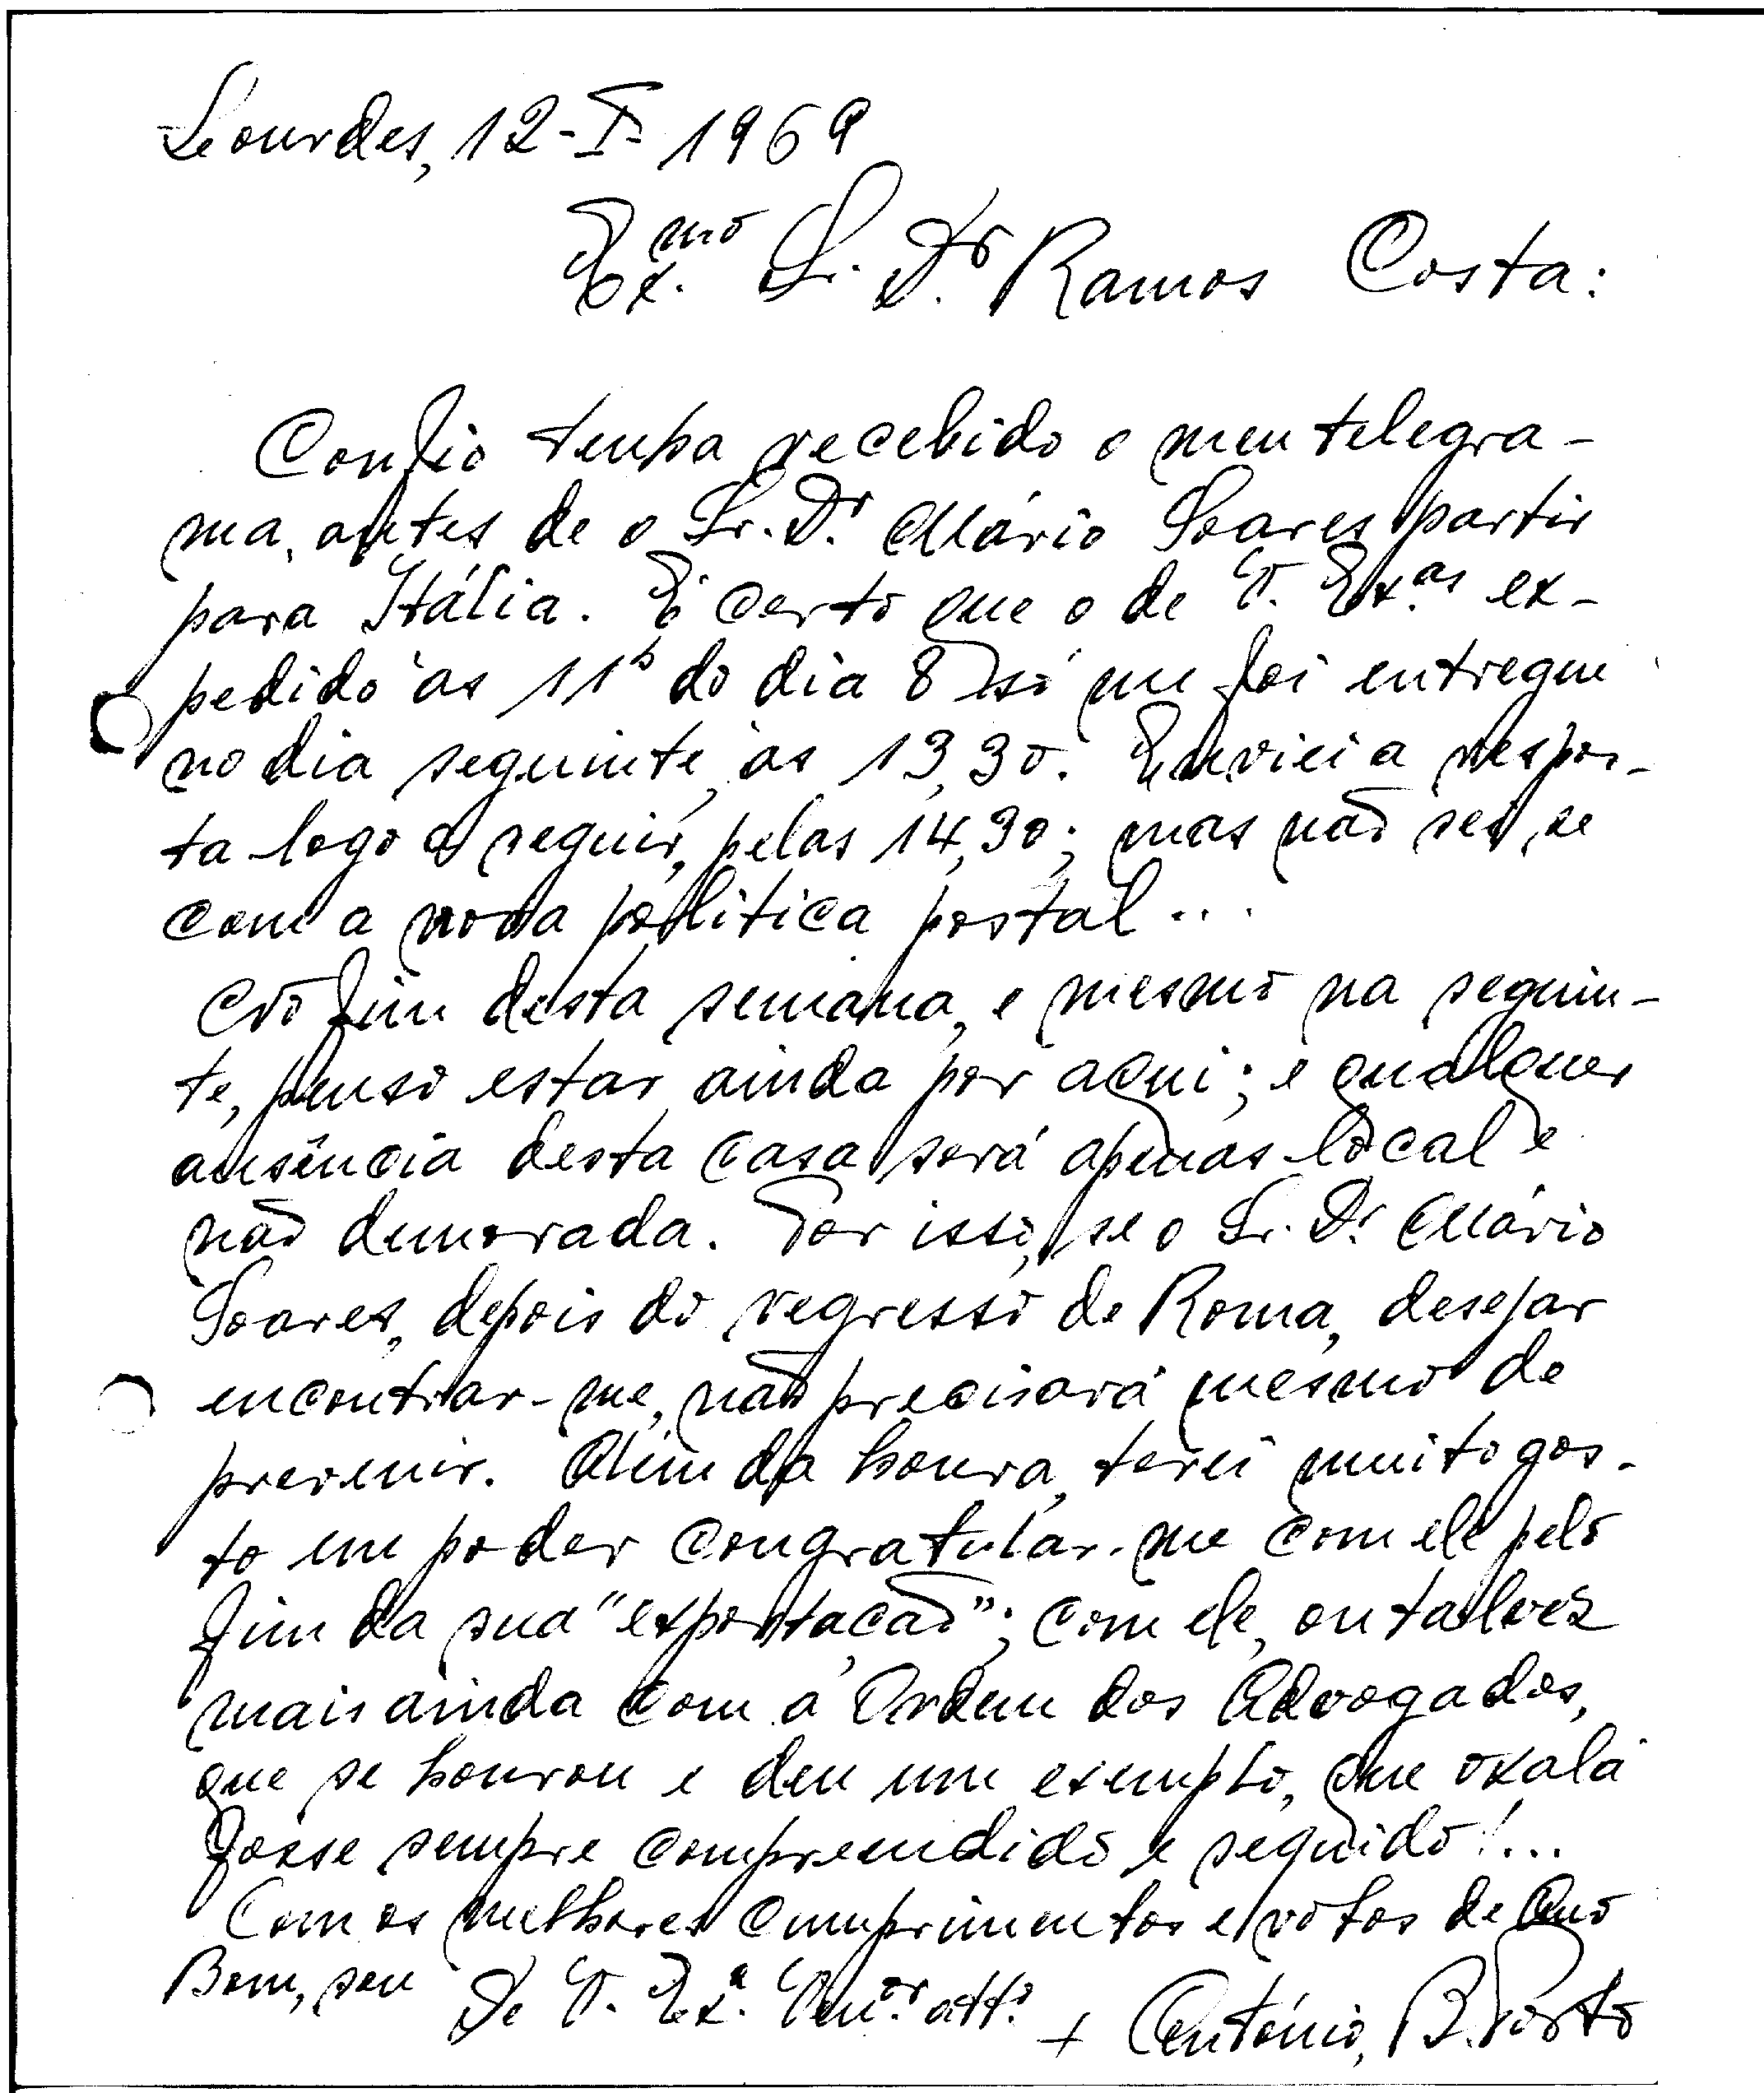 Lourdes, 12-I-1969
Ex.mo Sr. Dr. Ramos Costa:
Confio tenha recebido o meu telegra-
ma, antes de o Sr. Dr. Mário Soares partir
para Itália. É certo que o de V. Ex.as ex-
pedido às 11h do dia 8 só me foi entregue
no dia seguinte, às 13,30. Enviei a respos-
ta logo a seguir, pelas 14,30; mas não sei, se
com a nova política postal...
No fim desta semana, e mesmo na seguin-
te, penso estar ainda por aqui; e qualquer
ausência desta casa será apenas local e
não demorada. Por isso, se o Sr. Dr. Mário
Soares, depois do regresso de Roma, desejar
encontrar-me, não precisará mesmo de
prevenir. Além da honra, terei muito gos-
to em poder congratular-me com ele pelo
fim da sua "exportação"; com ele, ou talvez
mais ainda com a Ordem dos Advogados,
que se honrou e deu um exemplo, que oxalá
fosse sempre compreendido e seguido!...
Com os melhores cumprimentos e votos de Ano
Bom, sou
De V. Ex.a Ven.or att.o
+ António, B. Porto